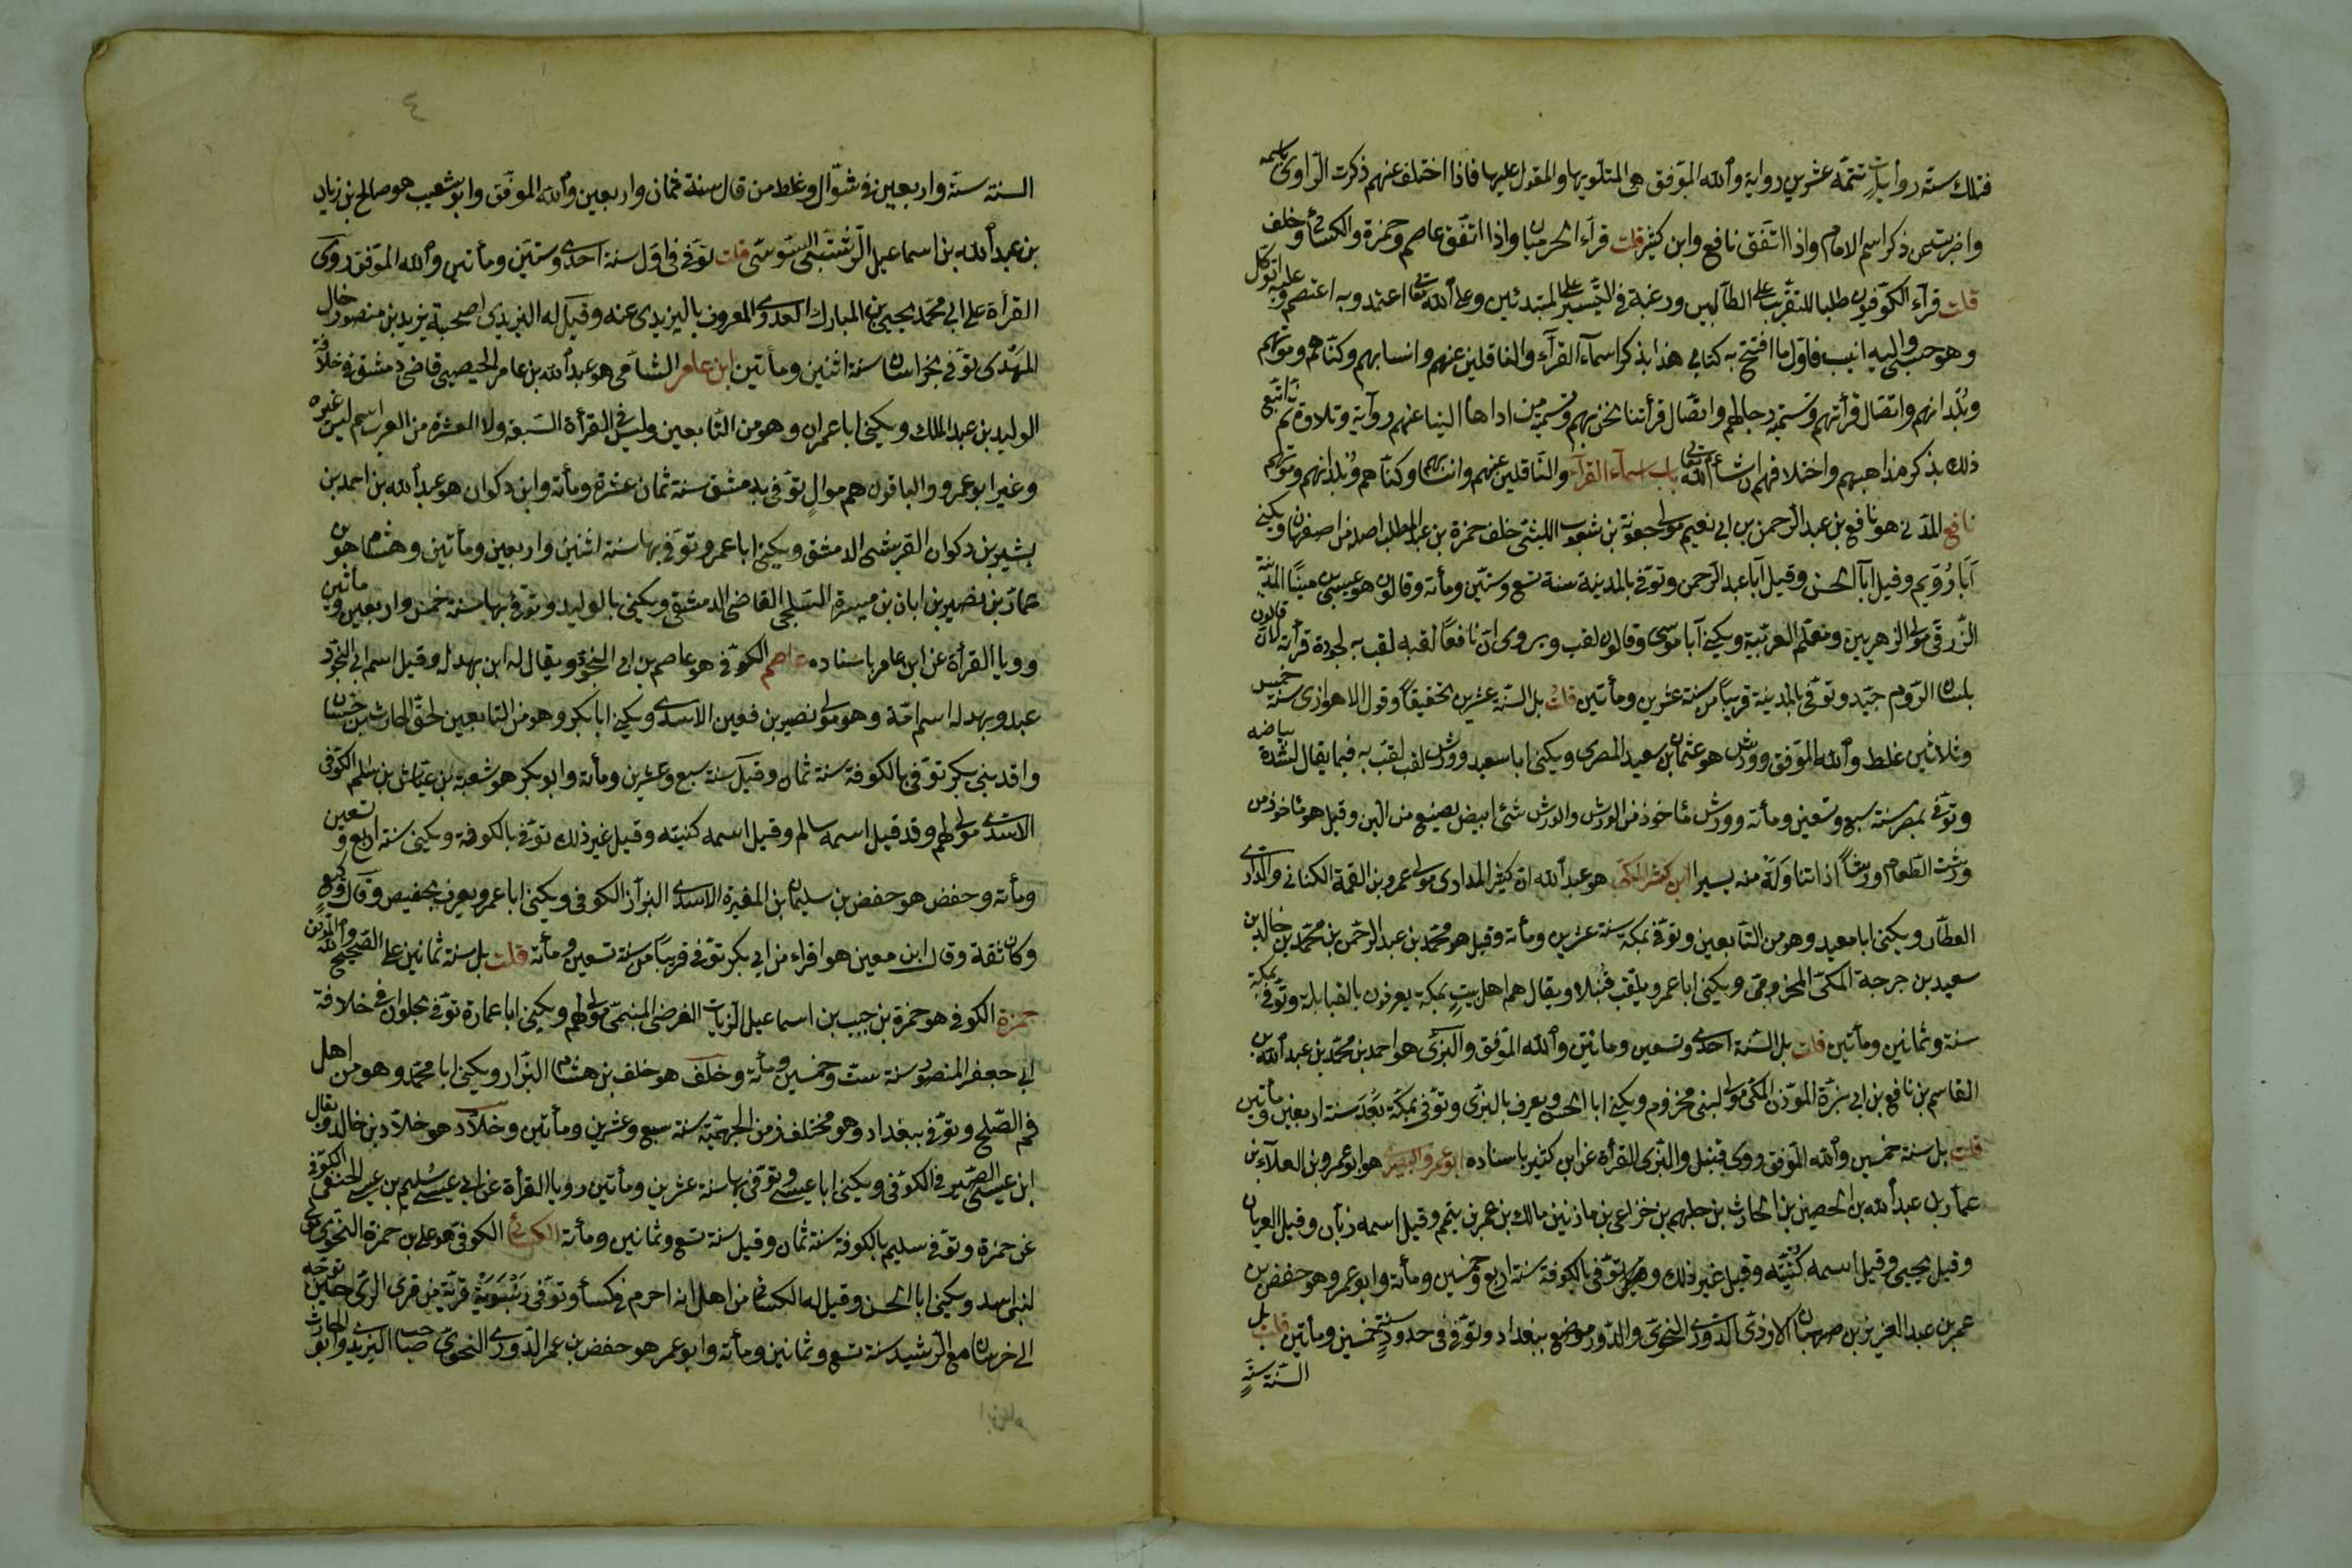 فتلك ستة روايات تتمة عشرين رواية والله الموفق هي المتلو بها والمقول عليها فاذا اختلف عنهم ذكرت الراوي باسمه
واضربت عن ذكر اسم الامام واذا اتفق نافع وابن كثير قلت قرأ الحرميان واذا اتفق عاصم وحمزة والكسائي وخلف
قلت قرأ الكوفيون طلبا للتقرب على الطالبين ورغبة في التيسير على المبتدئين وعلى الله تعالى اعتمد وبه اعتصم وعليه اتوكل
وهو حسبي واليه انيب فاول ما افتتح به كتابي هذا بذكر اسماء القراء والناقلين عنهم وانسابهم وكناهم وموتهم
وبلدانهم واتصال قرأتهم وتسمية رجالهم واتصال قرأتنا نحن بهم وتسمية من اداها الينا عنهم رواية وتلاوة ثم نتبع
ذلك بذكر مذاهبهم واختلافهم ان شاء الله تعالى باب اسماء القراء والناقلين عنهم وانسابهم وكناهم وبلدانهم وموتهم
نافع المدني هو نافع بن عبد الرحمن بن ابي نعيم مولى جعونة بن شعوب الليثي حلف حمزة بن عبد المطلب اصله من اصفهان ويكنى
ابا رويم وقيل ابا الحسن وقيل ابا عبد الرحمن وتوفي بالمدينة سنة تسع وستين ومأته وقالون هو عيسى بن مينا المدينة
الزرقي مولى الزهريين ومعلم العربية ويكنى ابا موسى وقالون لقب ويروى ان نافعا لقبه لقب به لجودة قرأته لان قالون
بلسان الروم جيد وتوفي بالمدينة قريبا من سنة عشرين ومأتين قلت بل السنة عشرين تحقيقا وقول الاهوازي سنة خمس
وثلاثين غلط والله الموفق وورش هو عثمان بن سعيد المصري ويكنى ابا سعيد وورش لقب لقب به فيما يقال لشدة بياضه
وتوفي بمصر سنة سبع وتسعين ومأته وورش مأخوذ من الورش والورش شئ ابيض يصنع من البن وقيل هو مأخوذ من
ورشت الطعام ورشا اذا تناولة منه يسيرا ابن كثير المكي هو عبد الله ان كثير الداري مولى عمرو بن القمة الكناني والداري
العطار ويكنى ابا معبد وهو من التابعين وتوفي بمكة سنة عشرين ومأته وقيل هو محمد بن عبد الرحمن بن محمد بن خالد بن
سعيد بن جرجة المكي المخزومي ويكنى ابا عمرو يلقب قنبلا ويقال هم اهل بيت بمكة يعرفون بالقبابلة وتوفي بمكة
سنة وثمانين ومأتين قلت بل السنة احدى وتسعين ومأتين والله الموفق والبزي هو احمد بن محمد بن عبد الله بن
القاسم بن نافع بن ابي بزة المؤذن المكي مولى لبني مخزوم ويكنى ابا الحسن ويعرف بالبزي وتوفي بمكة بعد سنة اربعين ومأتين
قلت بل سنة خمسين والله الموفق وروى قنبل والبزي القرأة عن ابن كثير باسناده ابو عمرو البصري هو ابو عمرو بن العلاء بن
عمار بن عبد الله بن الحصين بن الحارث بن جلهم بن خزاعي بن مازن بن مالك بن عمر بن تيم وقيل اسمه زبان وقيل العريان
وقيل يحيى وقيل اسمه كنيته وقيل غير ذلك وتوفي بالكوفة سنة اربع وخمسين ومأته وابو عمر وهو حفص بن
عمر بن عبد العزيز بن صهبان الازدي الدوري النحوي والدور موضع ببغداد وتوفي في حدود سنة خمسين ومأتين قلت بل
السنة ستة
٤
السنة ستة واربعين في شوال وغلط من قال سنة ثمان واربعين والله الموفق وابو شعيب هو صالح بن زياد
بن عبد الله بن اسماعيل الرستبي السوسي قلت توفي في اول سنة احدى وستين ومأتين والله الموفق روى
القرأة على ابي محمد يحيى بن المبارك العدوي المعروف باليزيدي عنه وقيل له اليزيدي لصحبة يزيد بن منصور خال
المهدي توفي بخراسان سنة اثنين ومأتين ابن عامر الشامي هو عبد الله بن عامر اليحصبي قاضي دمشق في خلافة
الوليد بن عبد الملك ويكنى ابا عمران وهو من التابعين وليس في القرأة السبعة ولا العشرة من العرب اسم ليس غيره
وغير ابو عمرو والباقون هم موال توفي بدمشق سنة ثمان عشرة ومأته وابن ذكوان هو عبد الله بن احمد بن
بشير بن ذكوان القرشي الدمشقي ويكنى ابا عمرو توفي بها سنة اثنين واربعين ومأتين وهشام هو بن
عمار بن نصير بن ابان بن ميسرة السلمي القاضي الدمشقي ويكنى بالوليد وتوفي بها سنة خمس واربعين ومأتين
ورويا القرأة عن ابن عامر باسناده عاصم الكوفي هو عاصم بن ابي النجود ويقال له ابن بهدل وقيل اسم ابي النجود
عبد وبهدله اسم امه وهو مولى نصير بن قعين الاسدي ويكنى ابا بكر وهو من التابعين لحق الحارث بن حسان
وافد بني بكر توفي بالكوفة سنة ثمان وقيل سنة سبع وعشرين ومأته وابو بكر هو شعبة بن عياش بن سالم الكوفي
الاسدي مولى لهم وقد قيل اسمه سالم وقيل اسمه كنيته وقيل غير ذلك توفي بالكوفة ويكنى سنة اربع وتسعين
ومأته وحفص هو حفص بن سليمان بن المغيرة الاسدي البزاز الكوفي ويكنى ابا عمرو يعرف بحفيص وقال وكيع
وكان ثقة وقال ابن معين هو اقراء من ابي بكر توفي قريبا من سنة تسعين ومأته قلت بل سنة ثمانين على الصحيح والله الموفق
حمزة الكوفي هو حمزة بن حبيب بن اسماعيل الزيات الفرضي التيمي مولى لهم ويكنى ابا عمارة توفي بحلوان في خلافة
ابي جعفر المنصور سنة ست وخمسين ومأته وخلف هو خلف بن هشام البزار ويكنى ابا محمد وهو من اهل
فم الصلح وتوفي ببغداد وهو مختلف من الجهمية سنة سبع وعشرين ومأتين وخلاد هو خلاد بن خالد ويقال
ابن عيسى الصيرفي الكوفي ويكنى ابا عيسى وتوفي بها سنة عشرين ومأتين رويا القرأة عن ابي عيسى سليم بن عيسى الحنفي الكوفي
عن حمزة وتوفي سليم بالكوفة سنة ثمان وقيل سنة تسع وثمانين ومأته الكسائي الكوفي هو علي بن حمزة النحوي مولى
لبني اسد ويكنى ابا الحسن وقيل له الكسائي من اهل انه احرم في كسأ وتوفي رنبوية قرية من قرى الري حين توجه
الى خرسان مع الرشيد سنة تسع وثمانين ومأته وابو عمر هو حفص بن عمر الدوري النحوي صاحب اليزيدي وابو الحارث